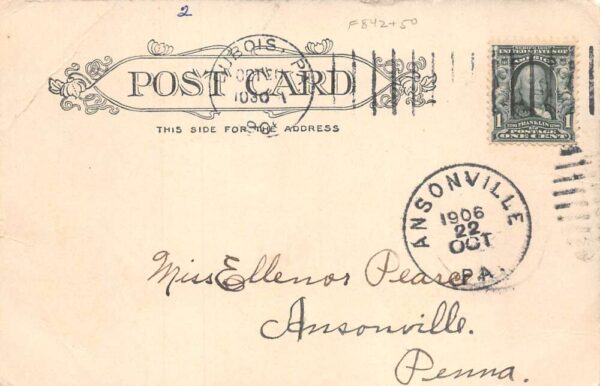 2
F842+50
DUBOIS, PA.
1030
POST CARD
THIS SIDE FOR THE ADDRESS
SERIES 1902
UNITED STATES OF
AMERICA
FRANKLIN
POSTAGE
1 ONE CENT 1
ANSONVILLE
1906
22
OCT
PA.
Miss Ellenor Pearce
Ansonville.
Penna.